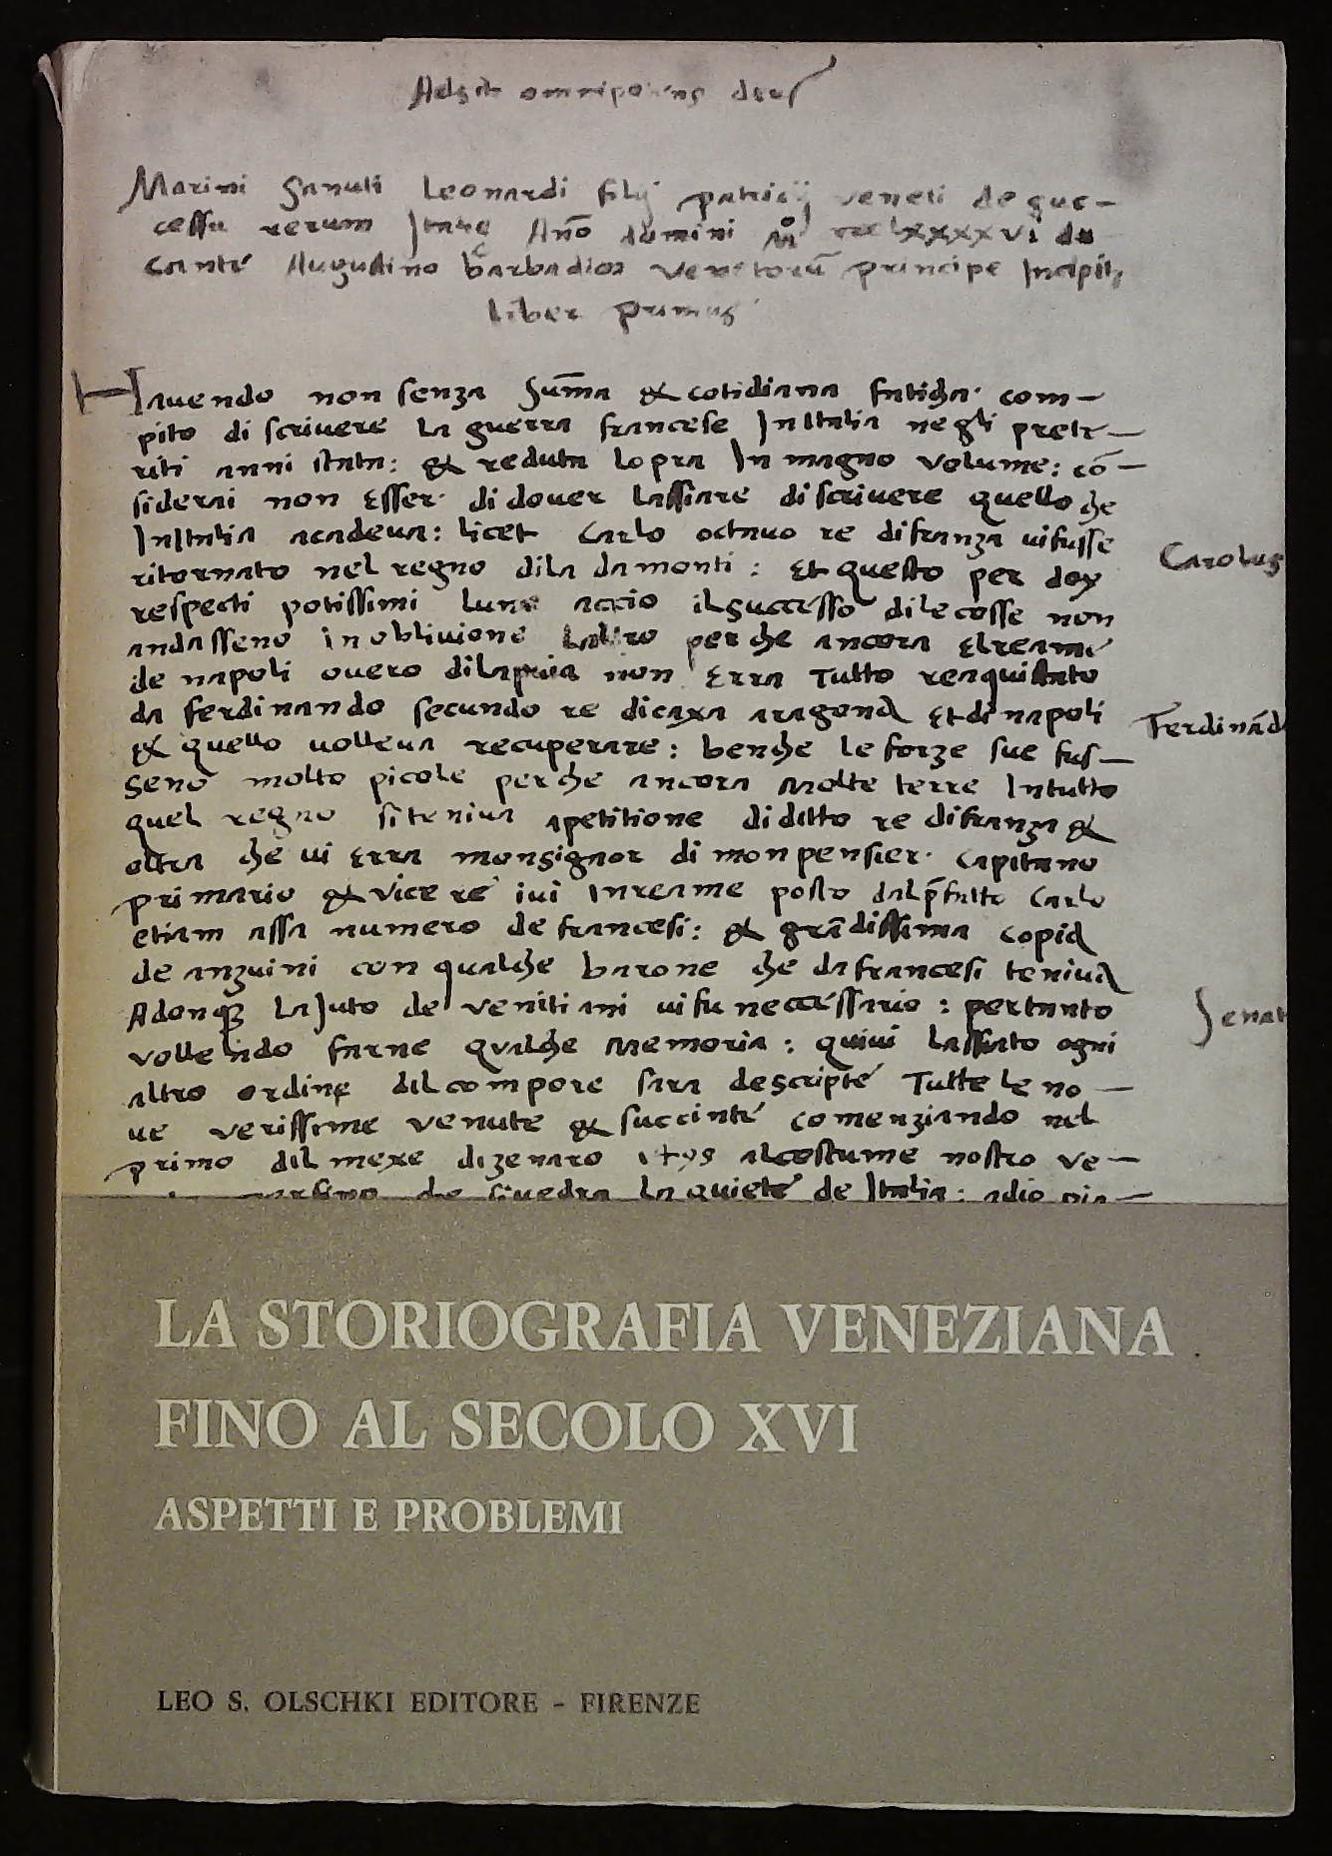 Adsit omnipotens deus
Marini Sanuti Leonardi filij patricij veneti de suc-
cessu rerum Italię Año domini Mº cccclxxxxvi du
cante Augustino barbadico Venetorū principe Incipit
liber primus
Hauendo non senza sum̄a & cotidiana faticha com-
pito di scriuere la guerra francese In Italia negli prete-
riti anni stata: & reduta lopra In magno volume: cō-
siderai non esser di douer lassare di scriuere quello che
In Italia acadeua: licet Carlo octauo re di franza ui fusse
ritornato nel regno di la da monti: Et questo per doy
respecti potissimi luno accio il successo di le cosse non
andasseno in obliuione laltro perche ancora el reame
de napoli ouero di la puia non erra tutto reaquistato
da ferdinando secundo re di caxa aragona Et di napoli
& quello volleua recuperare: benche le forze sue fus-
seno molto picole perche ancora molte terre In tutto
quel regno si teniua a petitione di ditto re di franza &
oltra che ui erra monsignor di monpensier capitano
primario & vice re iui In reame posto dal p̄fatto Carlo
etiam assa numero de francesi: & grādissima copia
de anzuini con qualche barone che da francesi teniua
Adonqȝ la Juto de venitiani ui fu necessario: pertanto
vollendo farne qualche memoria: quiui lassato ogni
altro ordine dil compore sara descripte Tutte le no-
ue verissime venute & succinte comenziando nel
primo dil mexe di zenaro 1495 al costume nostro ve-
che si uedra la quiete de Italia: adio pia-
Carolus
Ferdinād
Senat
LA STORIOGRAFIA VENEZIANA
FINO AL SECOLO XVI
ASPETTI E PROBLEMI
LEO S. OLSCHKI EDITORE - FIRENZE